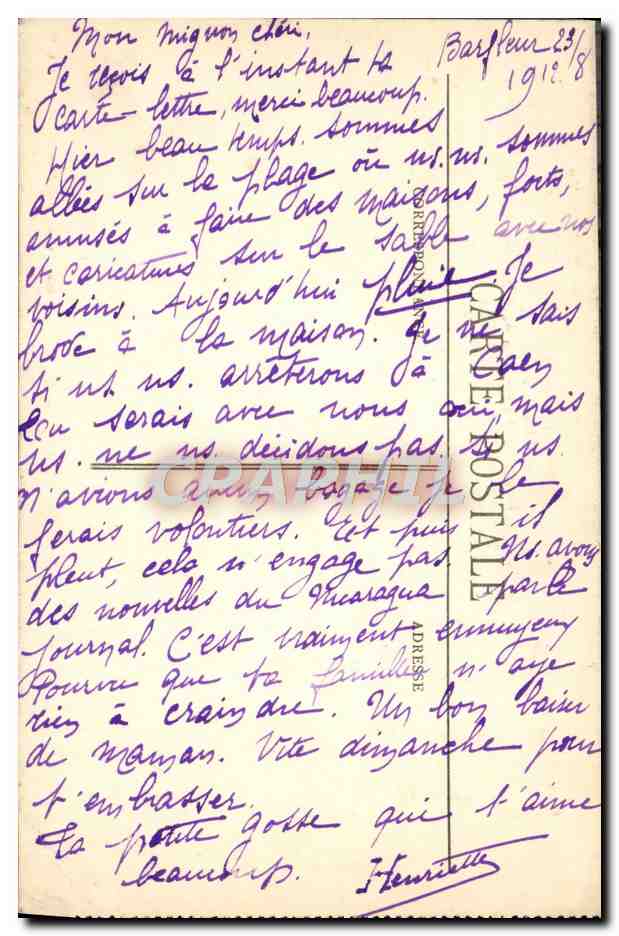 Mon mignon chéri, Barfleur 23/8
1912.
Je reçois à l'instant ta
carte-lettre, merci beaucoup.
Hier beau temps. Sommes
allés sur la plage où ns. ns. sommes
amusés à faire des maisons, forts,
et caricatures sur le sable avec nos
voisins. Aujourd'hui pluie. Je
brode à la maison. Je ne sais
si ns. ns. arrêterons à Caen
tu serais avec nous oui, mais
ns. ne ns. décidons pas. Si ns.
n'avions aucun bagage je le
ferais volontiers. Et puis il
pleut, cela n'engage pas. Ns. avons
des nouvelles du Nicaragua par le
journal. C'est vraiment ennuyeux
Pourvu que ta famille n'aye
rien à craindre. Un bon baiser
de maman. Vite dimanche pour
t'embrasser.
Ta petite gosse qui t'aime
beaucoup. Henriette
CARTE POSTALE
CORRESPONDANCE
ADRESSE
CPAPHIL